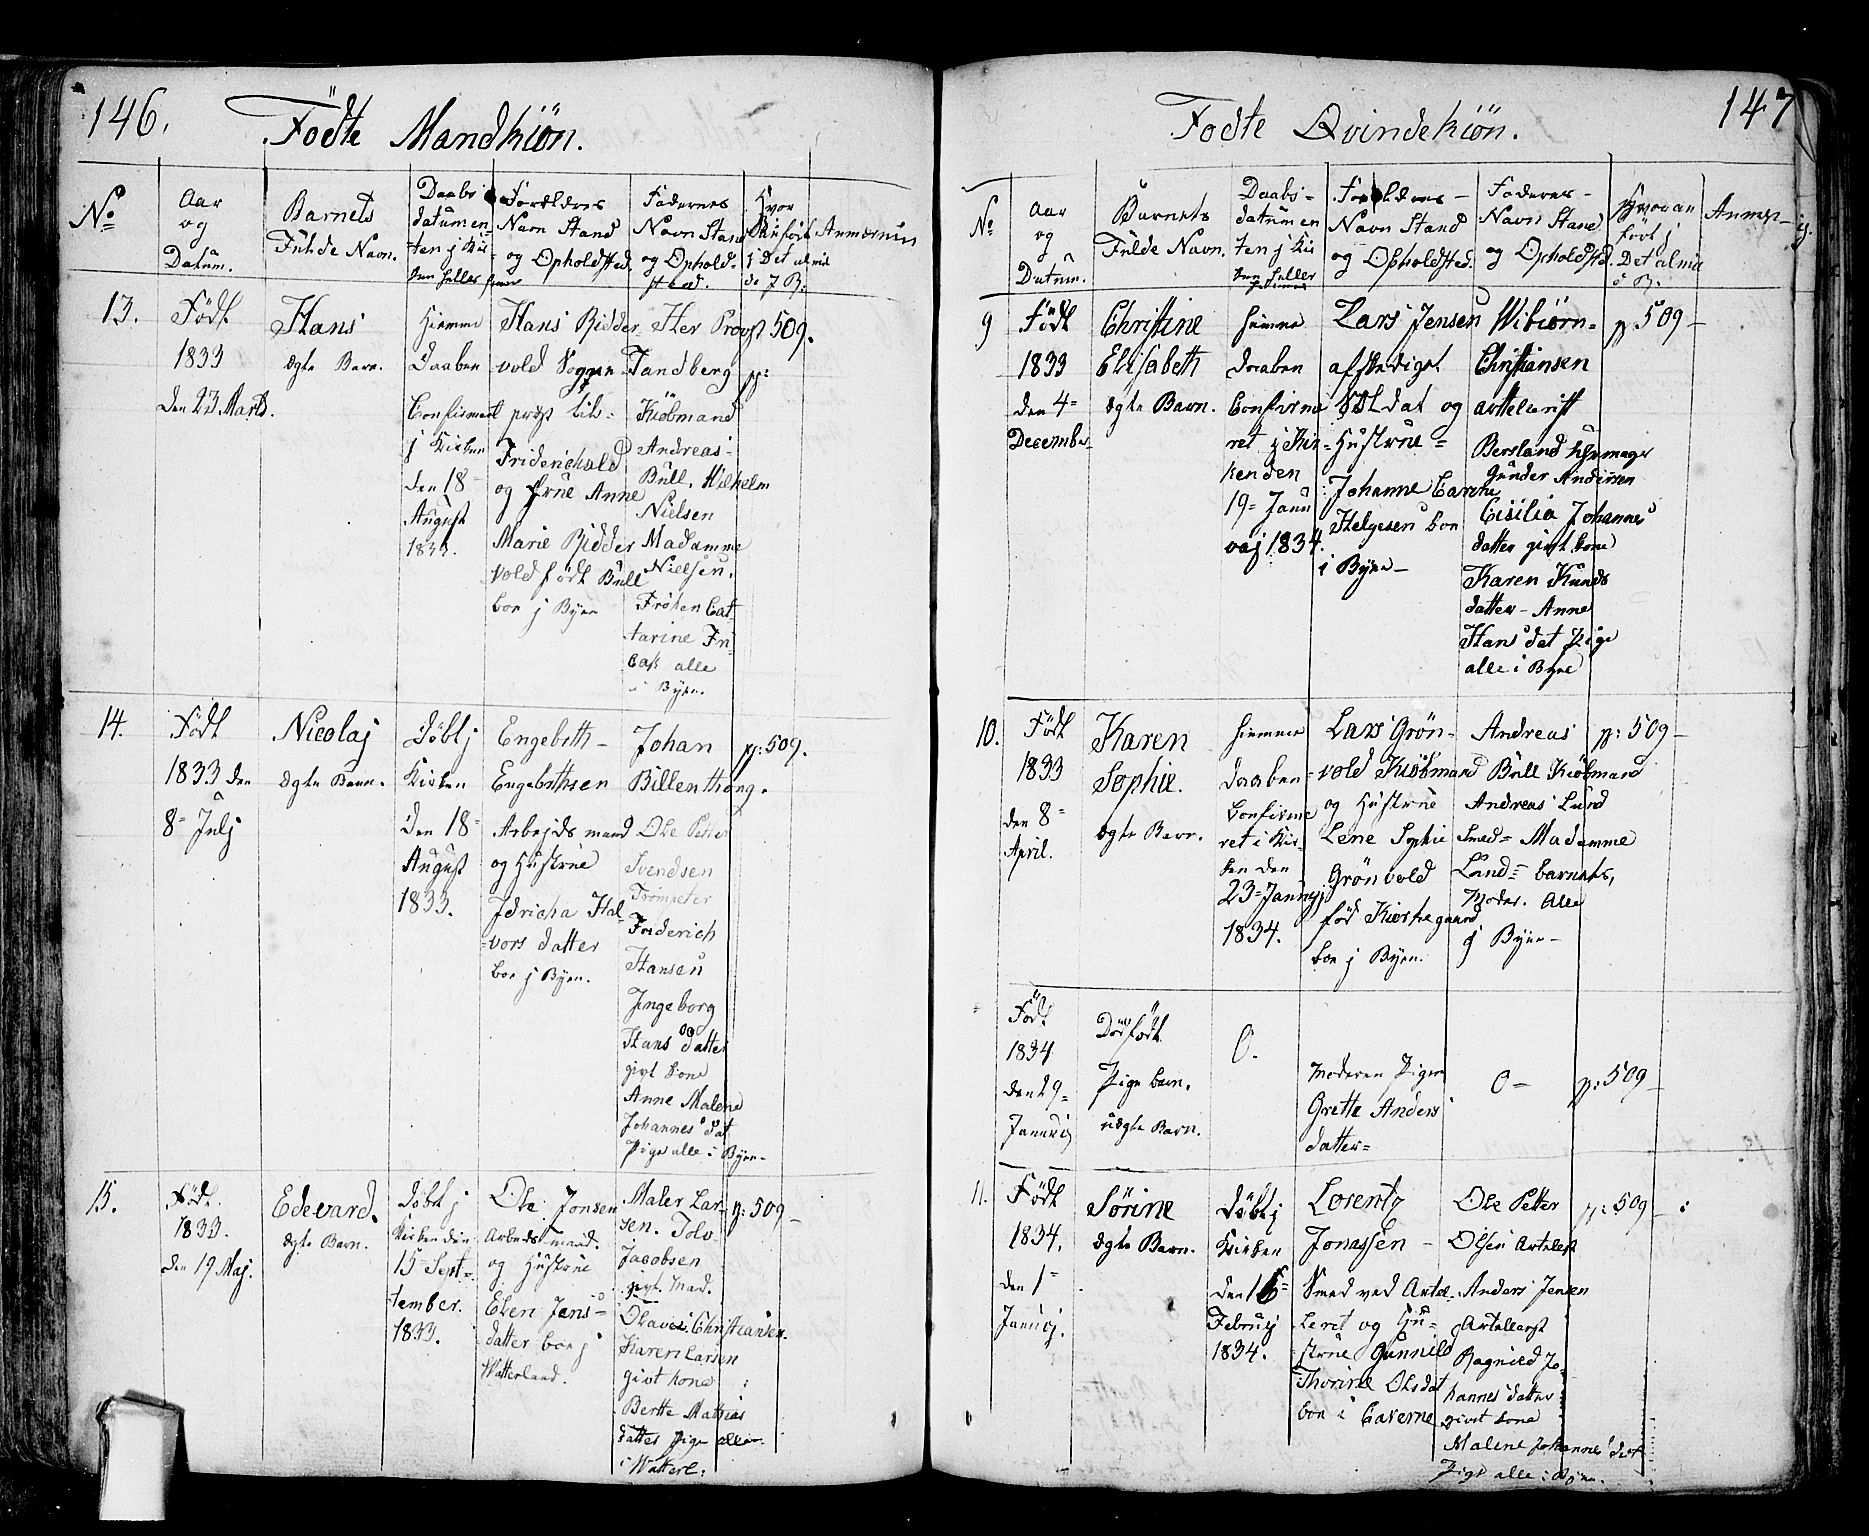 146.
Födte Mandkiön.
No
Aar
og
Datum.
Barnets
Fulde Navn.
Daabs
datum en
ten j Kir
ken heller hiem
Forældres
Navn Stand
og Opholdsted.
Fadernes
Navn Stand
og Ophold-
sted.
Hvor
j Det almi
Anmærknin
13.
Födt
1833
den 23 Marts.
Hans
ægte Barn.
Hiemme
daaben
Confirmert
j Kirken
den 18
August
1833.
Hans Ridder
vold Soggne
præst til
Friderichald
og Frue Anne
Marie Ridder
vold födt Bull
boe j Byen
Her Provst
Tandberg
Kiöbmand
Andreas
Bull, Wilhelm
Nielsen
Madamme
Nielsen,
Fröken Cat
tarine
alle
i Byen.
509.
p:
14.
Födt
1833 den
8 Julj
Nicolaj
ægte Barn.
Döbt j
Kirken
den 18
August
1833.
Engebreth
Engebrethsen
Arbejds mand
og Hustrue
Idricha Hal
vors datter
boe j Byen.
Johan
Billenthong.
Ole Petter
Svendsen
Trompeter
Friderich
Hansen
Jngeborg
Hans datter
givt kone
Anne Malene
Johannes dat
Pige alle i Byen
p: 509.
15.
Födt.
1833.
den 19 Maj.
Edevard.
ægte Barn.
Döbt j
Kirken den
15 Sept
tember.
1833.
Ole Jonsen
Arbeds mand.
og Hustrue
Elen Jens
datter boe j
Watterland.
Maler Lar
sen. Tolv
Jacobsen
givt. mand.
Olaves Christiansen.
Karen Larsen
givt kone
Berthe Mathias
datter Pige alle
i Watterl:
p: 509
147
Fodte Qvindekiön.
No
Aar
og
Datum.
Barnets
Fulde Navn.
Daabs
datum en
ten j Kir
ken heller
Forældres
Navn Stand
og Opholdsted.
Fadernes
Navn Stand
og Opholdsted.
Hvor an
fört j
Det almi
Anmer
9
Födt
1833
den 4
December
Christine
Elisabeth
ægte Barn.
hiemme
daaben
Confirme
ret j Kir
ken den
19 Janu
vaj 1834.
Lars Jensen
afskediget
Soldat og
Hustrue
Johanne
Helgesen boe
i Byen
Wibiörn
Christiansen
Bersland
Gunder Andersen
Cisilia Johannes
datter givt kone
Karen Knuds
datter Anne
Hans dat Pige
alle i Byen
p 509
10.
Födt
1833
den 8
April.
Karen
Sophie.
ægte Barn.
hiemme
daaben
Confirme
ret i Kir
ken den
23 Januaj
1834.
Lars Grön
vold Kiöbmand
og Hustrue
Lene Sophie
Grönvold
föd Kierkegaard
boe j Byen.
Andreas
Bull Kiöbmand
Andreas Lund
Smed Madamme
Lund barnets,
Moder. Alle
j Byen
p: 509
Födt
1834
den 29
Januaj
Dödfödt
Pige barn.
uægte Barn.
0.
Moderen Pigen
Grette Anders
datter
0
p: 509
11.
Födt
1834.
den 1
Januaj.
Sörine
ægte Barn.
Döbt j
Kirken
den 16
Februaj
1834.
Lorentz
Jonassen
Smed ved Artel
leriet og Hu
strue Gunnild
Thorine Olsdat
boe i Caserne
Ole Petter
Olsen
Anders Jensen
Ragnild Jo
hannes datter
givt kone
Malene Johannes dat
Pige alle i Byen.
p: 509